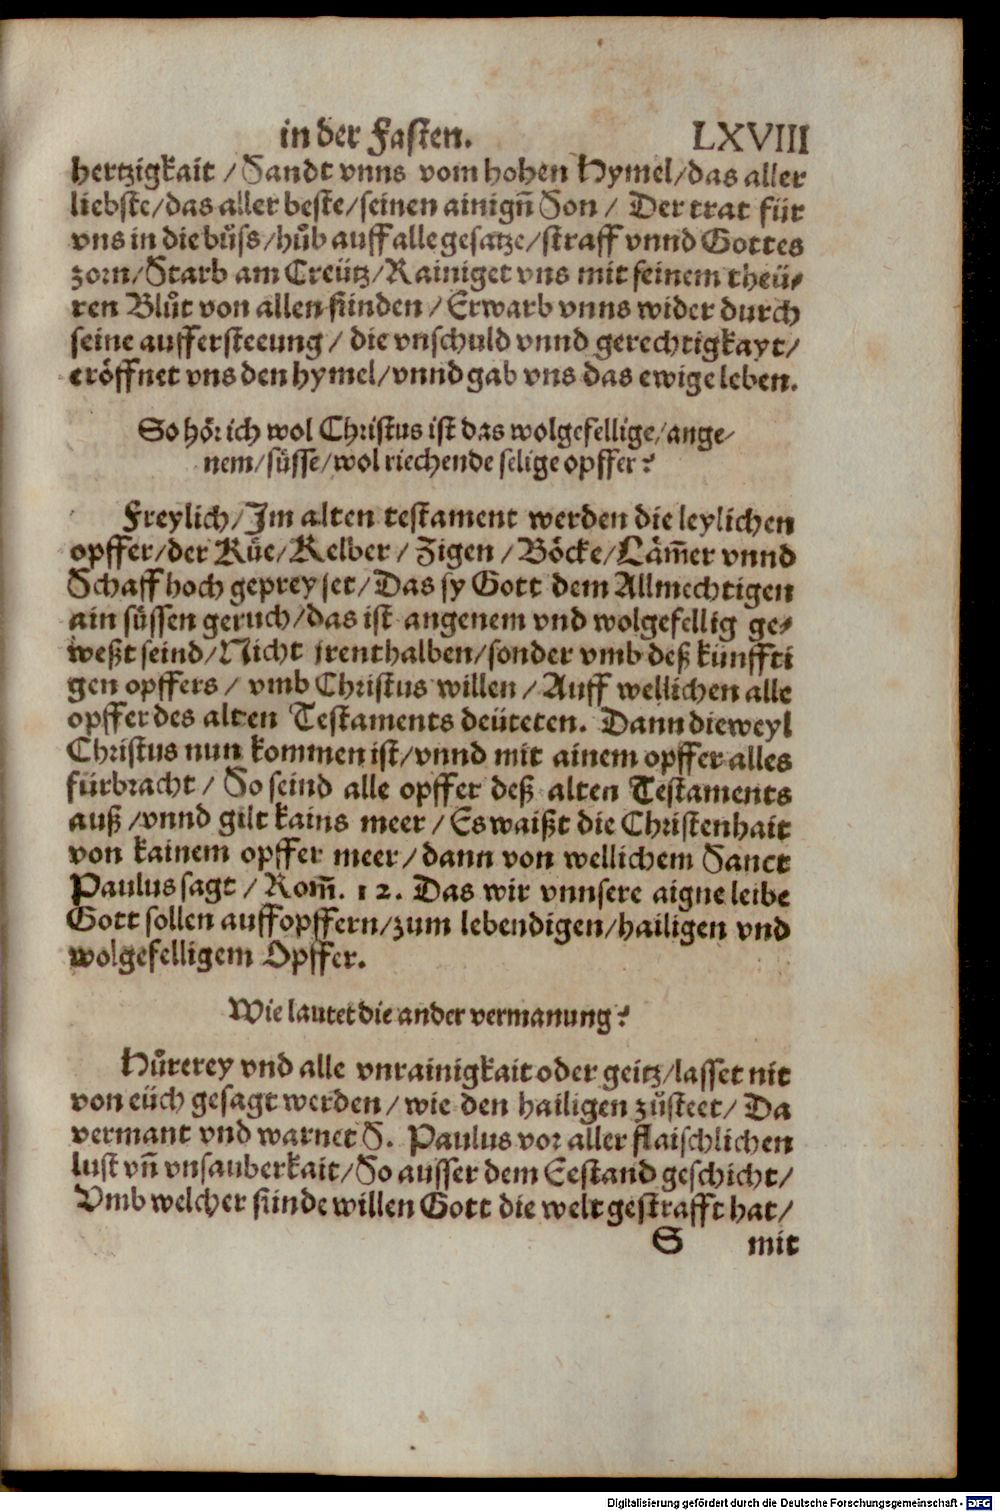 in der Fasten. LXVIII
hertzigkait / Sandt vnns vom hohen Hymel/das aller
liebste/das aller beste/seinen ainign̄ Son / Der trat für
vns in die bůss/hůb auff alle gesatze/straff vnnd Gottes
zorn/Starb am Creütz/Rainiget vns mit seinem theü⸗
ren Blůt von allen sünden / Erwarb vnns wider durch
seine auffersteeung / die vnschuld vnnd gerechtigkayt/
eröffnet vns den hymel/vnnd gab vns das ewige leben.
So hör ich wol Christus ist das wolgefellige/ange⸗
nem/süsse/wol riechende selige opffer?
Freylich/Im alten testament werden die leylichen
opffer/der Küe/Kelber / Zigen / Böcke/Läm̄er vnnd
Schaff hoch gepreyset/Das sy Gott dem Allmechtigen
ain süssen geruch/das ist angenem vnd wolgefellig ge⸗
weßt seind/Nicht jrenthalben/sonder vmb deß künffti
gen opffers / vmb Christus willen / Auff wellichen alle
opffer des alten Testaments deüteten. Dann dieweyl
Christus nun kommen ist/vnnd mit ainem opffer alles
fürbracht / So seind alle opffer deß alten Testaments
auß /vnnd gilt kains meer / Es waißt die Christenhait
von kainem opffer meer/dann von wellichem Sanct
Paulus sagt / Rom̄. 12. Das wir vnnsere aigne leibe
Gott sollen auffopffern/zum lebendigen/hailigen vnd
wolgefelligem Opffer.
Wie lautet die ander vermanung?
Hůrerey vnd alle vnrainigkait oder geitz/lasset nit
von eüch gesagt werden / wie den hailigen zůsteet/ Da
vermant vnd warnet S. Paulus vor aller flaischlichen
lust vn̄ vnsauberkait/So ausser dem Eestand geschicht/
Vmb welcher sünde willen Gott die welt gestrafft hat/
S mit
Digitalisierung gefördert durch die Deutsche Forschungsgemeinschaft - DFG